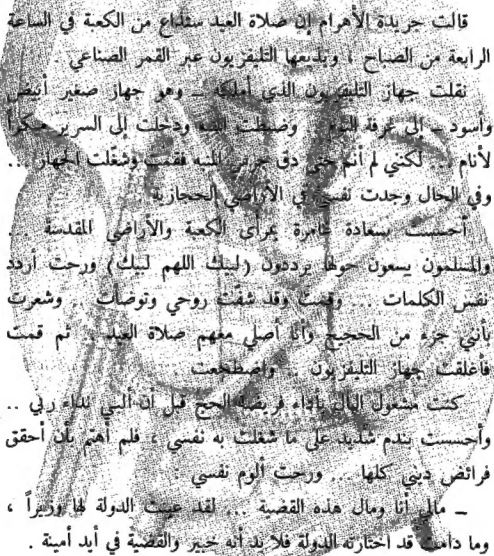 قالت جريدة الأهرام إن صلاة العيد ستذاع من الكعبة في الساعة
الرابعة من الصباح ، ويذيعها التليفزيون عبر القمر الصناعي .
نقلت جهاز التليفزيون الذي أملكه ــ وهو جهاز صغير أبيض
وأسود ــ إلى غرفة النوم . وضبطت المنبه ودخلت إلى السرير مبكراً
لأنام .. لكنني لم أنم حتى دق جرس المنبه فقمت وشغلت الجهاز ..
وفي الحال وجدت نفسي في الأراضي الحجازية
أحسست بسعادة غامرة بمرأى الكعبة والأراضي المقدسة ..
والمسلمون يسعون حولها يرددون (لبيك اللهم لبيك) ورحت أردد
نفس الكلمات ... وقمت وقد شفّت روحي وتوضأت .. وشعرت
بأنني جزء من الحجيج وأنا أصلي معهم صلاة العيد .. ثم قمت
فأغلقت جهاز التليفزيون .. واضطجعت .
كنت مشغول البال بأداء فريضة الحج قبل أن ألبي نداء ربي ..
وأحسست بندم شديد على ما شغلت به نفسي ، فلم أهتم بأن أحقق
فرائض ديني كلها ... ورحت ألوم نفسي :
ــ مالي أنا ومال هذه القضية ... لقد عينت الدولة لها وزيراً ،
وما دامت قد اختارته الدولة فلا بد أنه خبير والقضية في أيد أمينة .